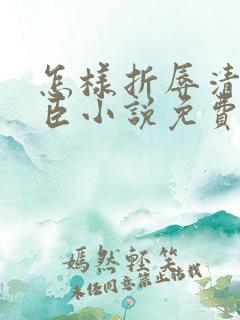 怎樣折辱清
臣小說免費
嫣然輕笑
未任同意禁止轉載